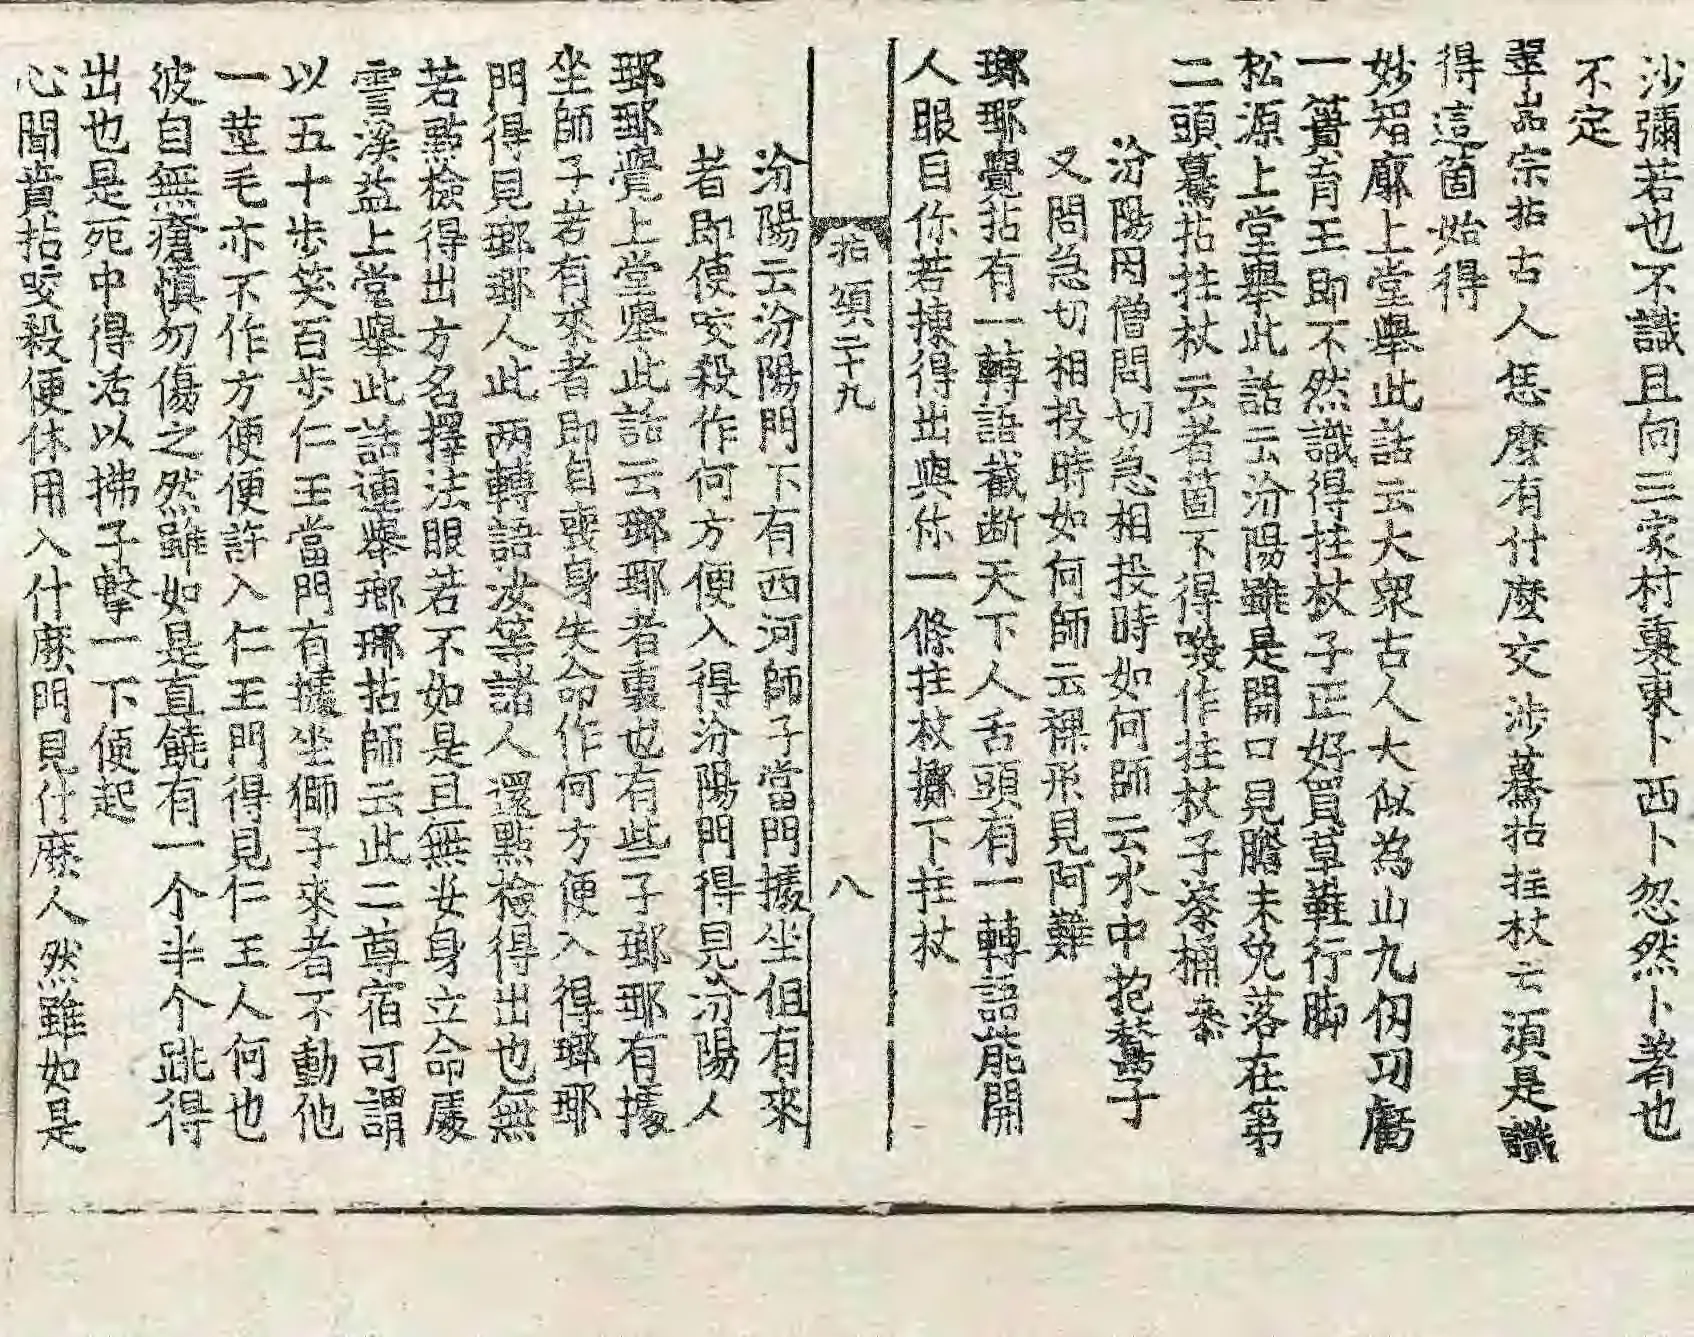 沙彌若也不識且向三家村裏東卜西卜忽然卜著也
不定
翠嵓宗拈古人恁麼有什麼交涉驀拈拄杖云須是識
得這箇始得
妙智廓上堂舉此話云大衆古人大似為山九仞功虧
一簣育王即不然識得拄杖子正好買草鞋行脚
松源上堂舉此話云汾陽雖是開口見膽未免落在第
二頭驀拈拄杖云者箇不得喚作拄杖子漆桶參
汾陽因僧問切急相投時如何師云水中抱鶖子
又問急切相投時如何師云裸形見阿難
瑯瑘覺拈有一轉語截断天下人舌頭有一轉語能開
人眼目你若揀得出與你一條拄杖擲下拄杖
拈頌二十九
八
汾陽云汾陽門下有西河師子當門據坐但有來
者即便咬殺作何方便入得汾陽門得見汾陽人
瑯瑘覺上堂舉此話云瑯瑘者裏也有些子瑯瑘有據
坐師子若有來者即自喪身失命作何方便入得瑯瑘
門得見瑯瑘人此两轉語汝等諸人還點檢得出也無
若點檢得出方名擇法眼若不如是且無安身立命處
雲溪益上堂舉此話連舉瑯瑘拈師云此二尊宿可謂
以五十歩笑百歩仁王當門有據坐獅子來者不動他
一莖毛亦不作方便便許入仁王門得見仁王人何也
彼自無瘡慎勿傷之然雖如是直饒有一个半个跳得
出也是死中得活以拂子擊一下便起
心聞賁拈咬殺便休用入什麽門見什麽人然雖如是